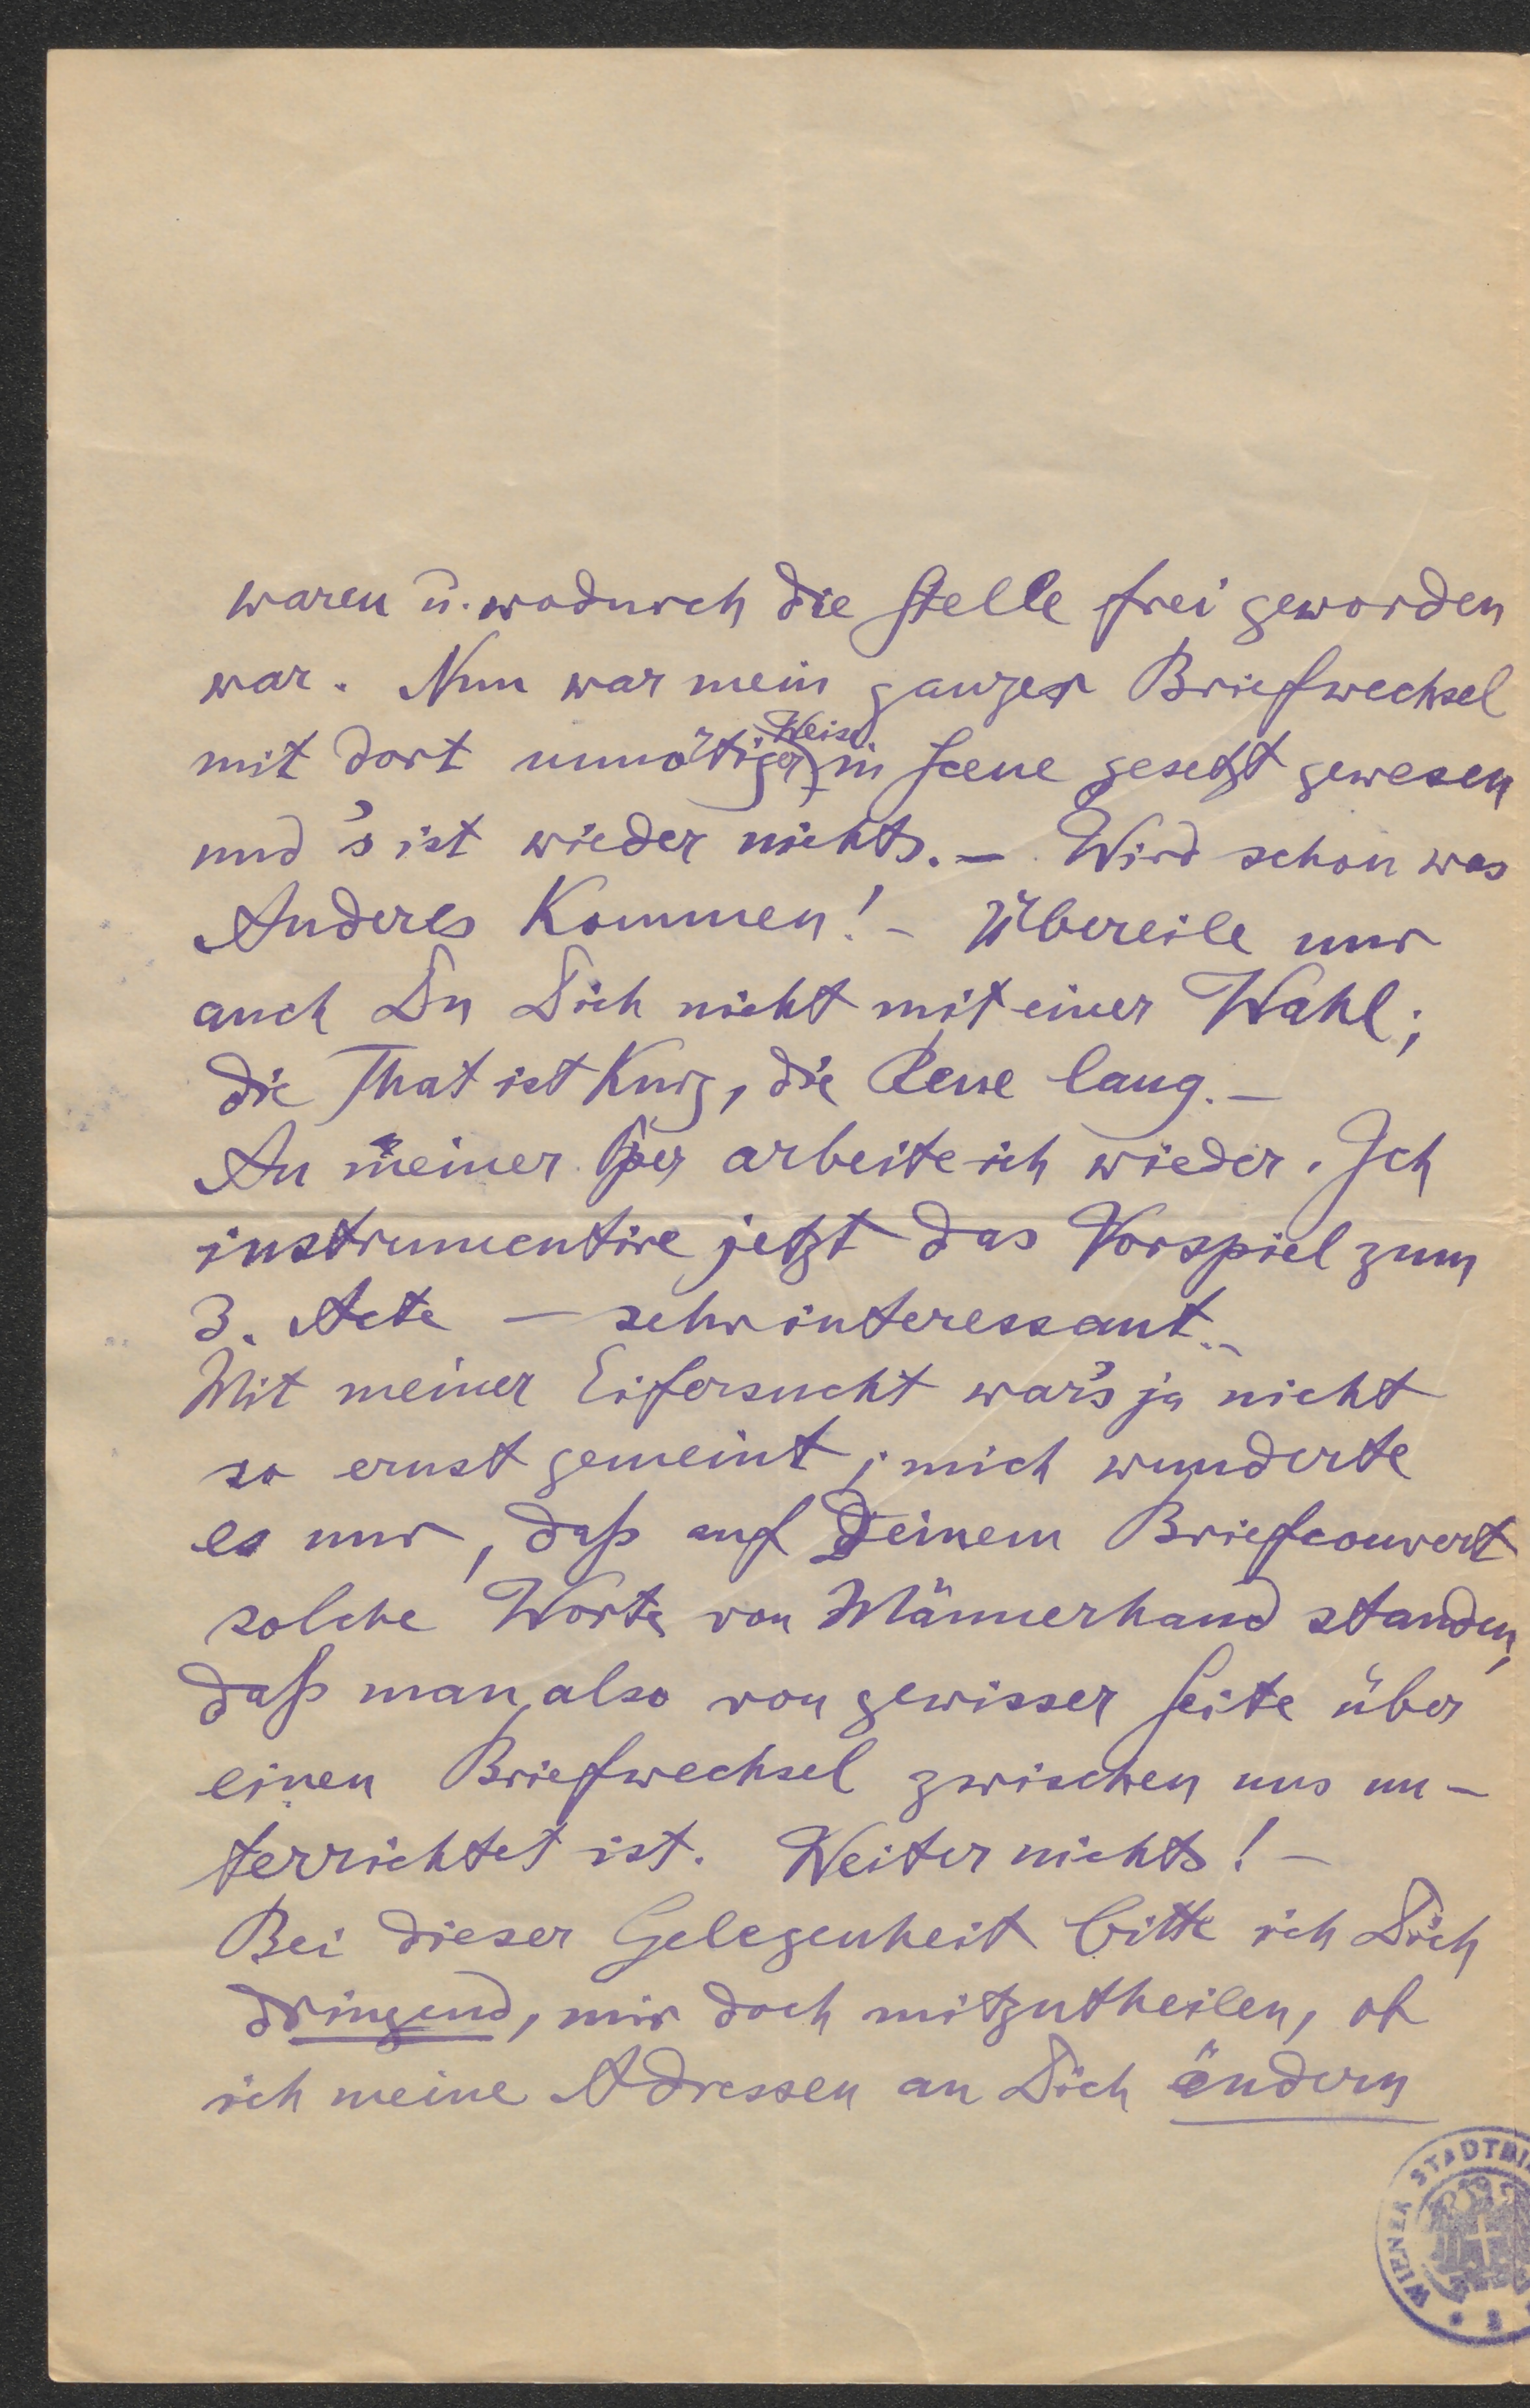 waren u. wodurch die Stelle frei geworden
war. Nun war mein ganzer Briefwechsel
mit dort unnötiger Weise in Scene gesetzt gewesen
und 's ist wieder nichts. – Wird schon was
Anderes kommen! – Übereile nur
auch Du Dich nicht mit einer Wahl;
die That ist kurz, die Reue lang. –
An meiner Oper arbeite ich wieder. Ich
instrumentire jetzt das Vorspiel zum
3. Acte – sehr interessant. –
Mit meiner Eifersucht war's ja nicht
so ernst gemeint; mich wunderte
es nur, daß auf Deinem Briefcouvert
solche Worte von Männerhand standen,
daß man also von gewisser Seite über
einen Briefwechsel zwischen uns un-
terrichtet ist. Weiter nichts! –
Bei dieser Gelegenheit bitte ich Dich
dringend, mir doch mitzutheilen, ob
ich meine Adressen an Dich ändern
WIENER STADT